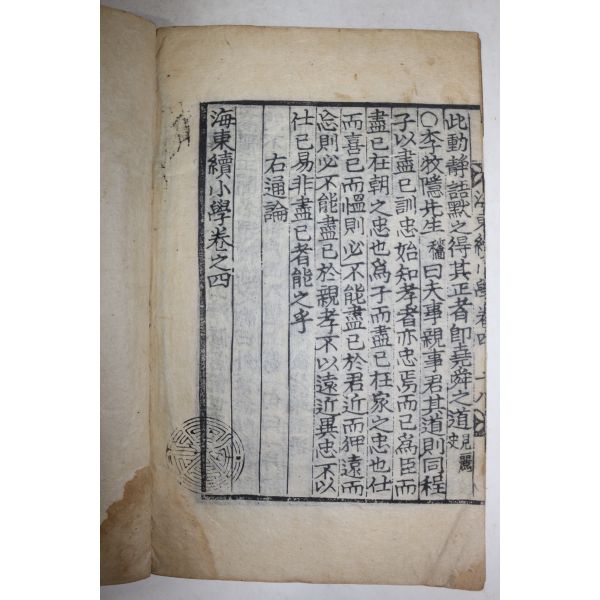 海東續小學卷四 十八
此動靜語默之得其正者卽堯舜之道 見麗史
○李牧隱先生 穡 曰夫事親事君其道則同程
子以盡己訓忠始知孝者亦忠焉而已爲臣而
盡己在朝之忠也爲子而盡己在家之忠也仕
而喜已而慍則必不能盡己於君近而狎遠而
忘則必不能盡己於親孝不以遠近異忠不以
仕已易非盡己者能之乎
右通論
海東續小學卷之四